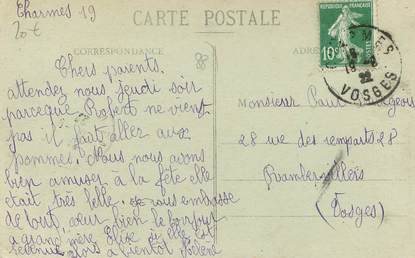 Charmes 19
20 €
CARTE POSTALE
CORRESPONDANCE
Chers parents.
attendez nous jeudi soir
parceque Robert ne vient
pas il faut aller aux
pommes. Nous nous avons
bien amuser à la fête elle
était très belle. Je vous embrasse
de tout cœur bien le bonjour
a grand mère Elise si elle est
revenue alors à bientôt
REPUBLIQUE FRANÇAISE
10c
POSTES
22
VOSGES
Monsieur Paul
28 rue des remparts 28
Rambervillers
(Vosges)